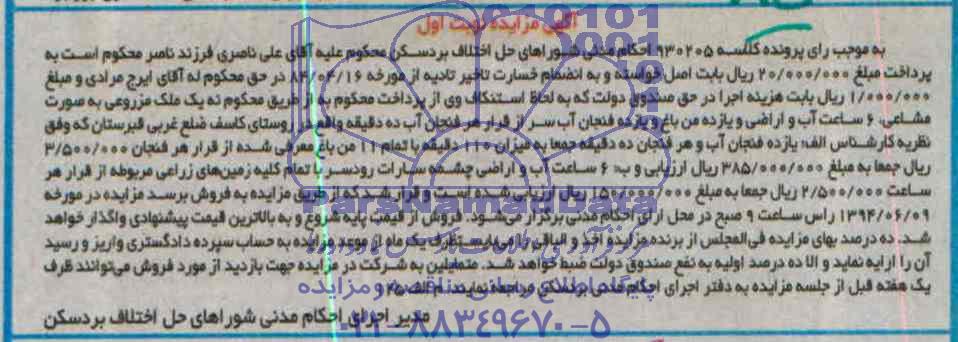 آگهی مزایده نوبت اول
به موجب رای پرونده کلاسه ۹۳۰۲۰۵ احکام مدنی شوراهای حل اختلاف بردسکن محکوم علیه آقای علی ناصری فرزند ناصر محکوم است به
پرداخت مبلغ ۲۰/۰۰۰/۰۰۰ ریال بابت اصل خواسته و به انضمام خسارت تاخیر تادیه از مورخه ۸۴/۰۴/۱۶ در حق محکوم له آقای ایرج مرادی و مبلغ
۱/۰۰۰/۰۰۰ ریال بابت هزینه اجرا در حق صندوق دولت که به لحاظ استنکاف وی از پرداخت محکوم به از طریق محکوم له یک ملک مزروعی به صورت
مشاعی، ۶ ساعت آب و اراضی و یازده من باغ و یازده فنجان آب سر از قرار هر فنجان آب ده دقیقه واقع در روستای کاسف ضلع غربی قبرستان که وفق
نظریه کارشناس الف: یازده فنجان آب و هر فنجان ده دقیقه جمعا به میزان ۱۱۰ دقیقه با تمام ۱۱ من باغ معرفی شده از قرار هر فنجان ۳/۵۰۰/۰۰۰
ریال جمعا به مبلغ ۳۸۵/۰۰۰/۰۰۰ ریال ارزیابی و ب: ۶ ساعت آب و اراضی چشمه سارات رودسر با تمام کلیه زمین‌های زراعی مربوطه از قرار هر
ساعت ۲/۵۰۰/۰۰۰ ریال جمعا به مبلغ ۱۵۰/۰۰۰/۰۰۰ ریال ارزیابی شده است و قرار شد که از طریق مزایده به فروش برسد مزایده در مورخه
۱۳۹۴/۰۶/۰۹ راس ساعت ۹ صبح در محل اجرای احکام مدنی برگزار می‌شود. فروش از قیمت پایه شروع و به بالاترین قیمت پیشنهادی واگذار خواهد
شد. ده درصد بهای مزایده فی‌المجلس از برنده مزایده اخذ و الباقی را می‌بایست ظرف یک ماه از موعد مزایده به حساب سپرده دادگستری واریز و رسید
آن را ارایه نماید و الا ده درصد اولیه به نفع صندوق دولت ضبط خواهد شد. متمایلین به شرکت در مزایده جهت بازدید از مورد فروش می‌توانند ظرف
یک هفته قبل از جلسه مزایده به دفتر اجرای احکام مدنی بردسکن مراجعه نمایند. م الف ۲۵
مدیر اجرای احکام مدنی شوراهای حل اختلاف بردسکن
ParsNamadData
پایگاه اطلاع رسانی مناقصه و مزایده
۰۲۱-۸۸۳۴۹۶۷۰-۵